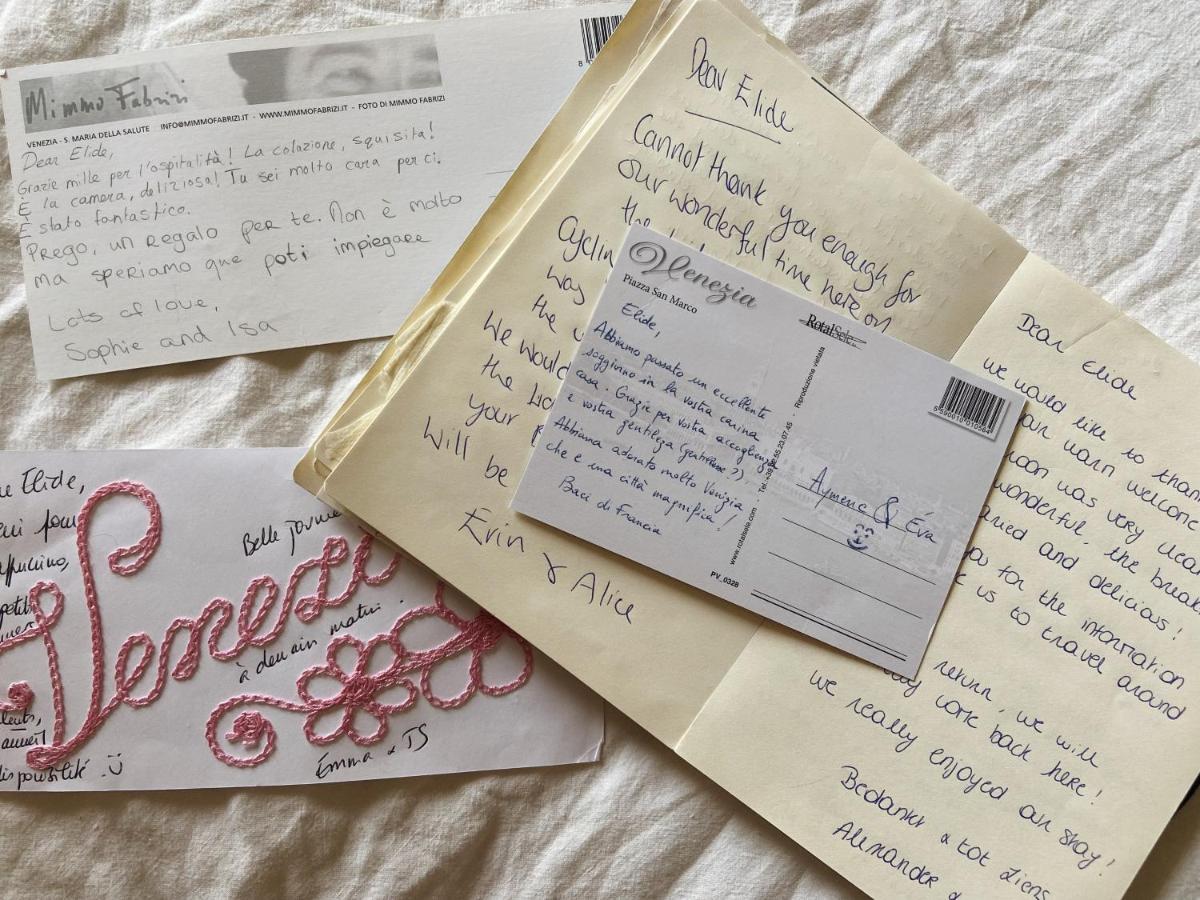 Mimmo Fabrizi
VENEZIA - S. MARIA DELLA SALUTE INFO@MIMMOFABRIZI.IT - WWW.MIMMOFABRIZI.IT - FOTO DI MIMMO FABRIZI
Dear Elide,
Grazie mille per l'ospitalità! La colazione, squisita!
È la camera, deliziosa! Tu sei molto cara per ci.
È stato fantastico.
Prego, un regalo per te. Non è molto
ma speriamo que poti impiegare
Lots of love,
Sophie and Isa
8
Dear Elide
Cannot thank you enough for
our wonderful time here on
the
Cyclin
was
the
We would
the
your
Will be
Erin & Alice
Venezia
Piazza San Marco
RotalSele
Elide,
Abbiamo passato un eccellente
soggiorno in la vostra carina
casa. Grazie per vostra accoglienza
e vostra gentileza (gentilezze?)
Abbiamo adorato molto Venizia
che è una città magnifica!
Baci di Francia
www.rotalsele.com - Tel. +39 55.23.07.45 - Riproduzione vietata
PV_0328
5 590010 010564
Aymeric & Éva
Dear Elide
We would like to than
our warm welcome
room was very clea
wonderful, the break
ared and delicious!
you for the information
us to travel around
return, we will
work back here!
we really enjoyed our stay!
Bedankt & tot ziens
Alexander &
Elide,
pour
appucino,
petit
Belle journ
Venezi
à demain matin.
disponibilité :)
Émma & JS